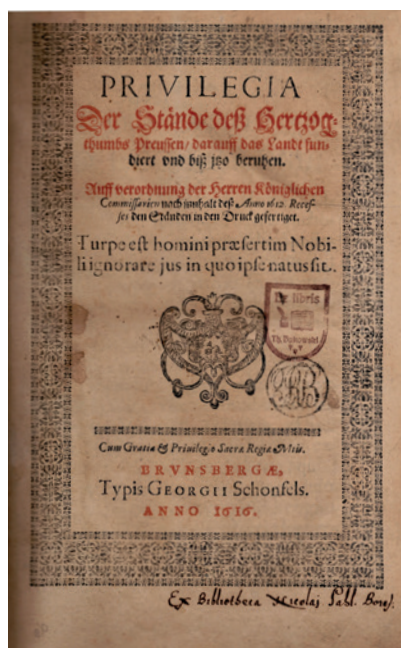 PRIVILEGIA
Der Stände deß Hertzog-
thumbs Preussen/ darauff das Landt fun-
diert vnd biß itzo beruhen.
Auff verordnung der Herren Königlichen
Commissarien nach innhalt deß Anno 1612 Reces-
ses den Ständen in den Druck gefertiget.
Turpe est homini præsertim Nobi-
li ignorare jus in quo ipse natus sit.
Ex libris
Cum Gratia & Privilegio Sacræ Regiæ Mtis.
BRVNSBERGÆ,
Typis GEORGII Schonfels.
ANNO 1616.
Ex Bibliotheca Nicolaj